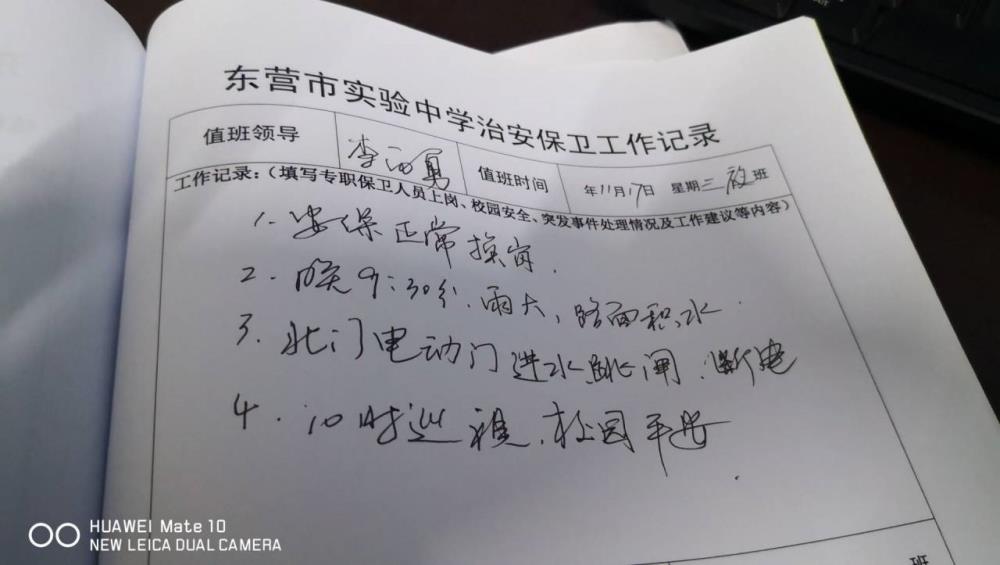 东营市实验中学治安保卫工作记录
值班领导 李西勇 值班时间 年11月17日 星期三夜班
工作记录:(填写专职保卫人员上岗、校园安全、突发事件处理情况及工作建议等内容)
1.安保正常换岗.
2.晚9:30分.雨大,路面积水.
3.北门电动门进水跳闸.断电
4.10时巡视.校园平安.
班
HUAWEI Mate 10
NEW LEICA DUAL CAMERA